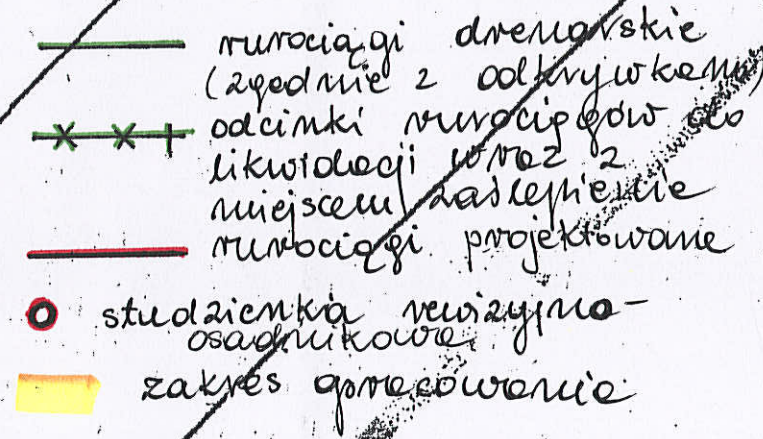 rurociągi drenarskie
(zgodnie z odkrywkami)
odcinki rurociągów do
likwidacji wraz z
miejscem zaślepienie
rurociągi projektowane
studzienka rewizyjno-
osadnikowa
zakres opracowania